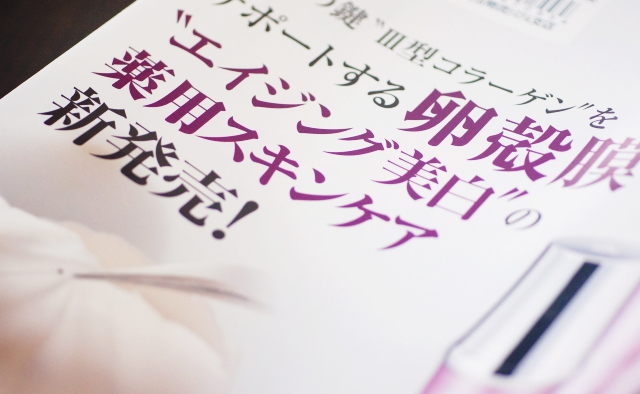 鍵“Ⅲ型コラーゲン”を
サポートする卵殻膜
“エイジング美白”の
薬用スキンケア
新発売!